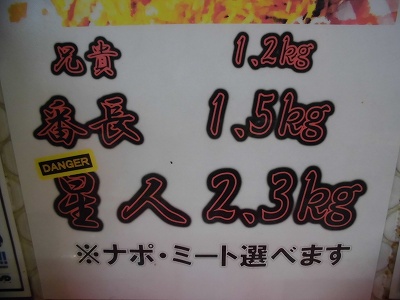 兄貴 1.2kg
番長 1.5kg
DANGER
星人 2.3kg
※ナポ・ミート選べます